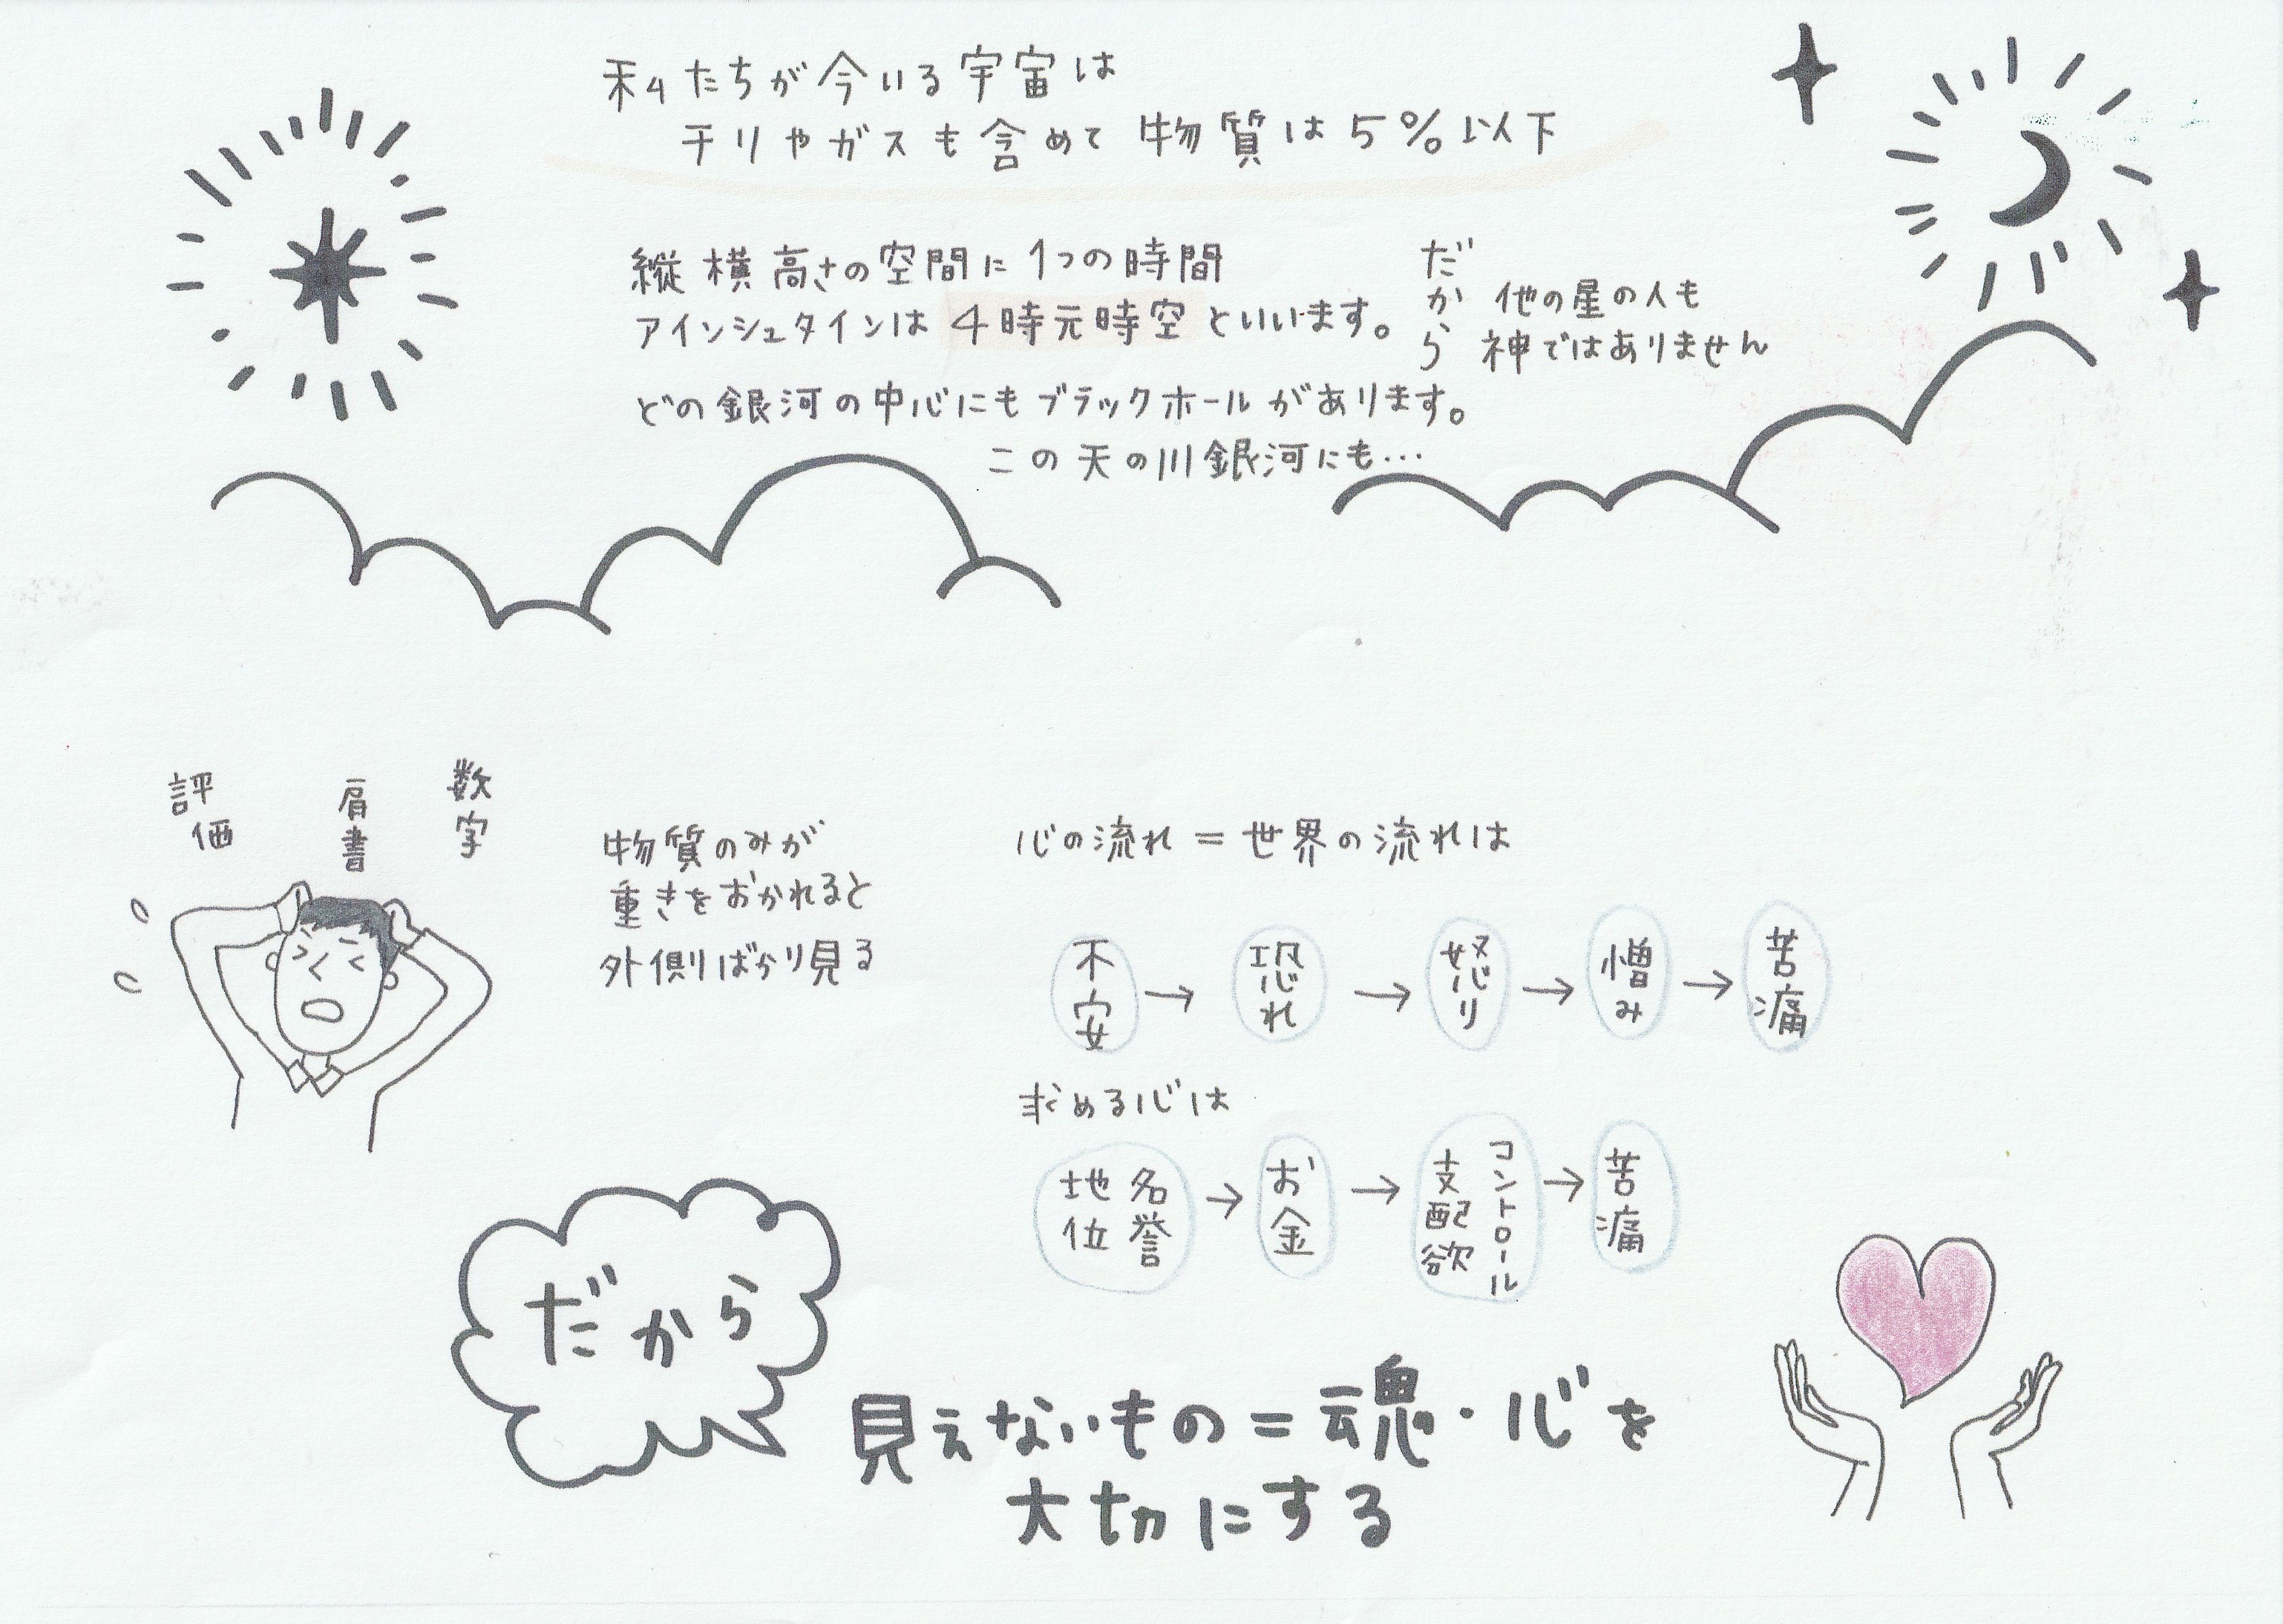 私たちが今いる宇宙は
チリやガスも含めて物質は5%以下
縦横高さの空間に1つの時間
アインシュタインは4時元時空といいます。
だから
他の星の人も
神ではありません
どの銀河の中心にもブラックホールがあります。
この天の川銀河にも…
評価
肩書
数字
物質のみが
重きをおかれると
外側ばかり見る
心の流れ=世界の流れは
不安→恐れ→怒り→憎み→苦痛
求める心は
地位 名誉→お金→支配欲 コントロール→苦痛
だから
見えないもの=魂・心を
大切にする